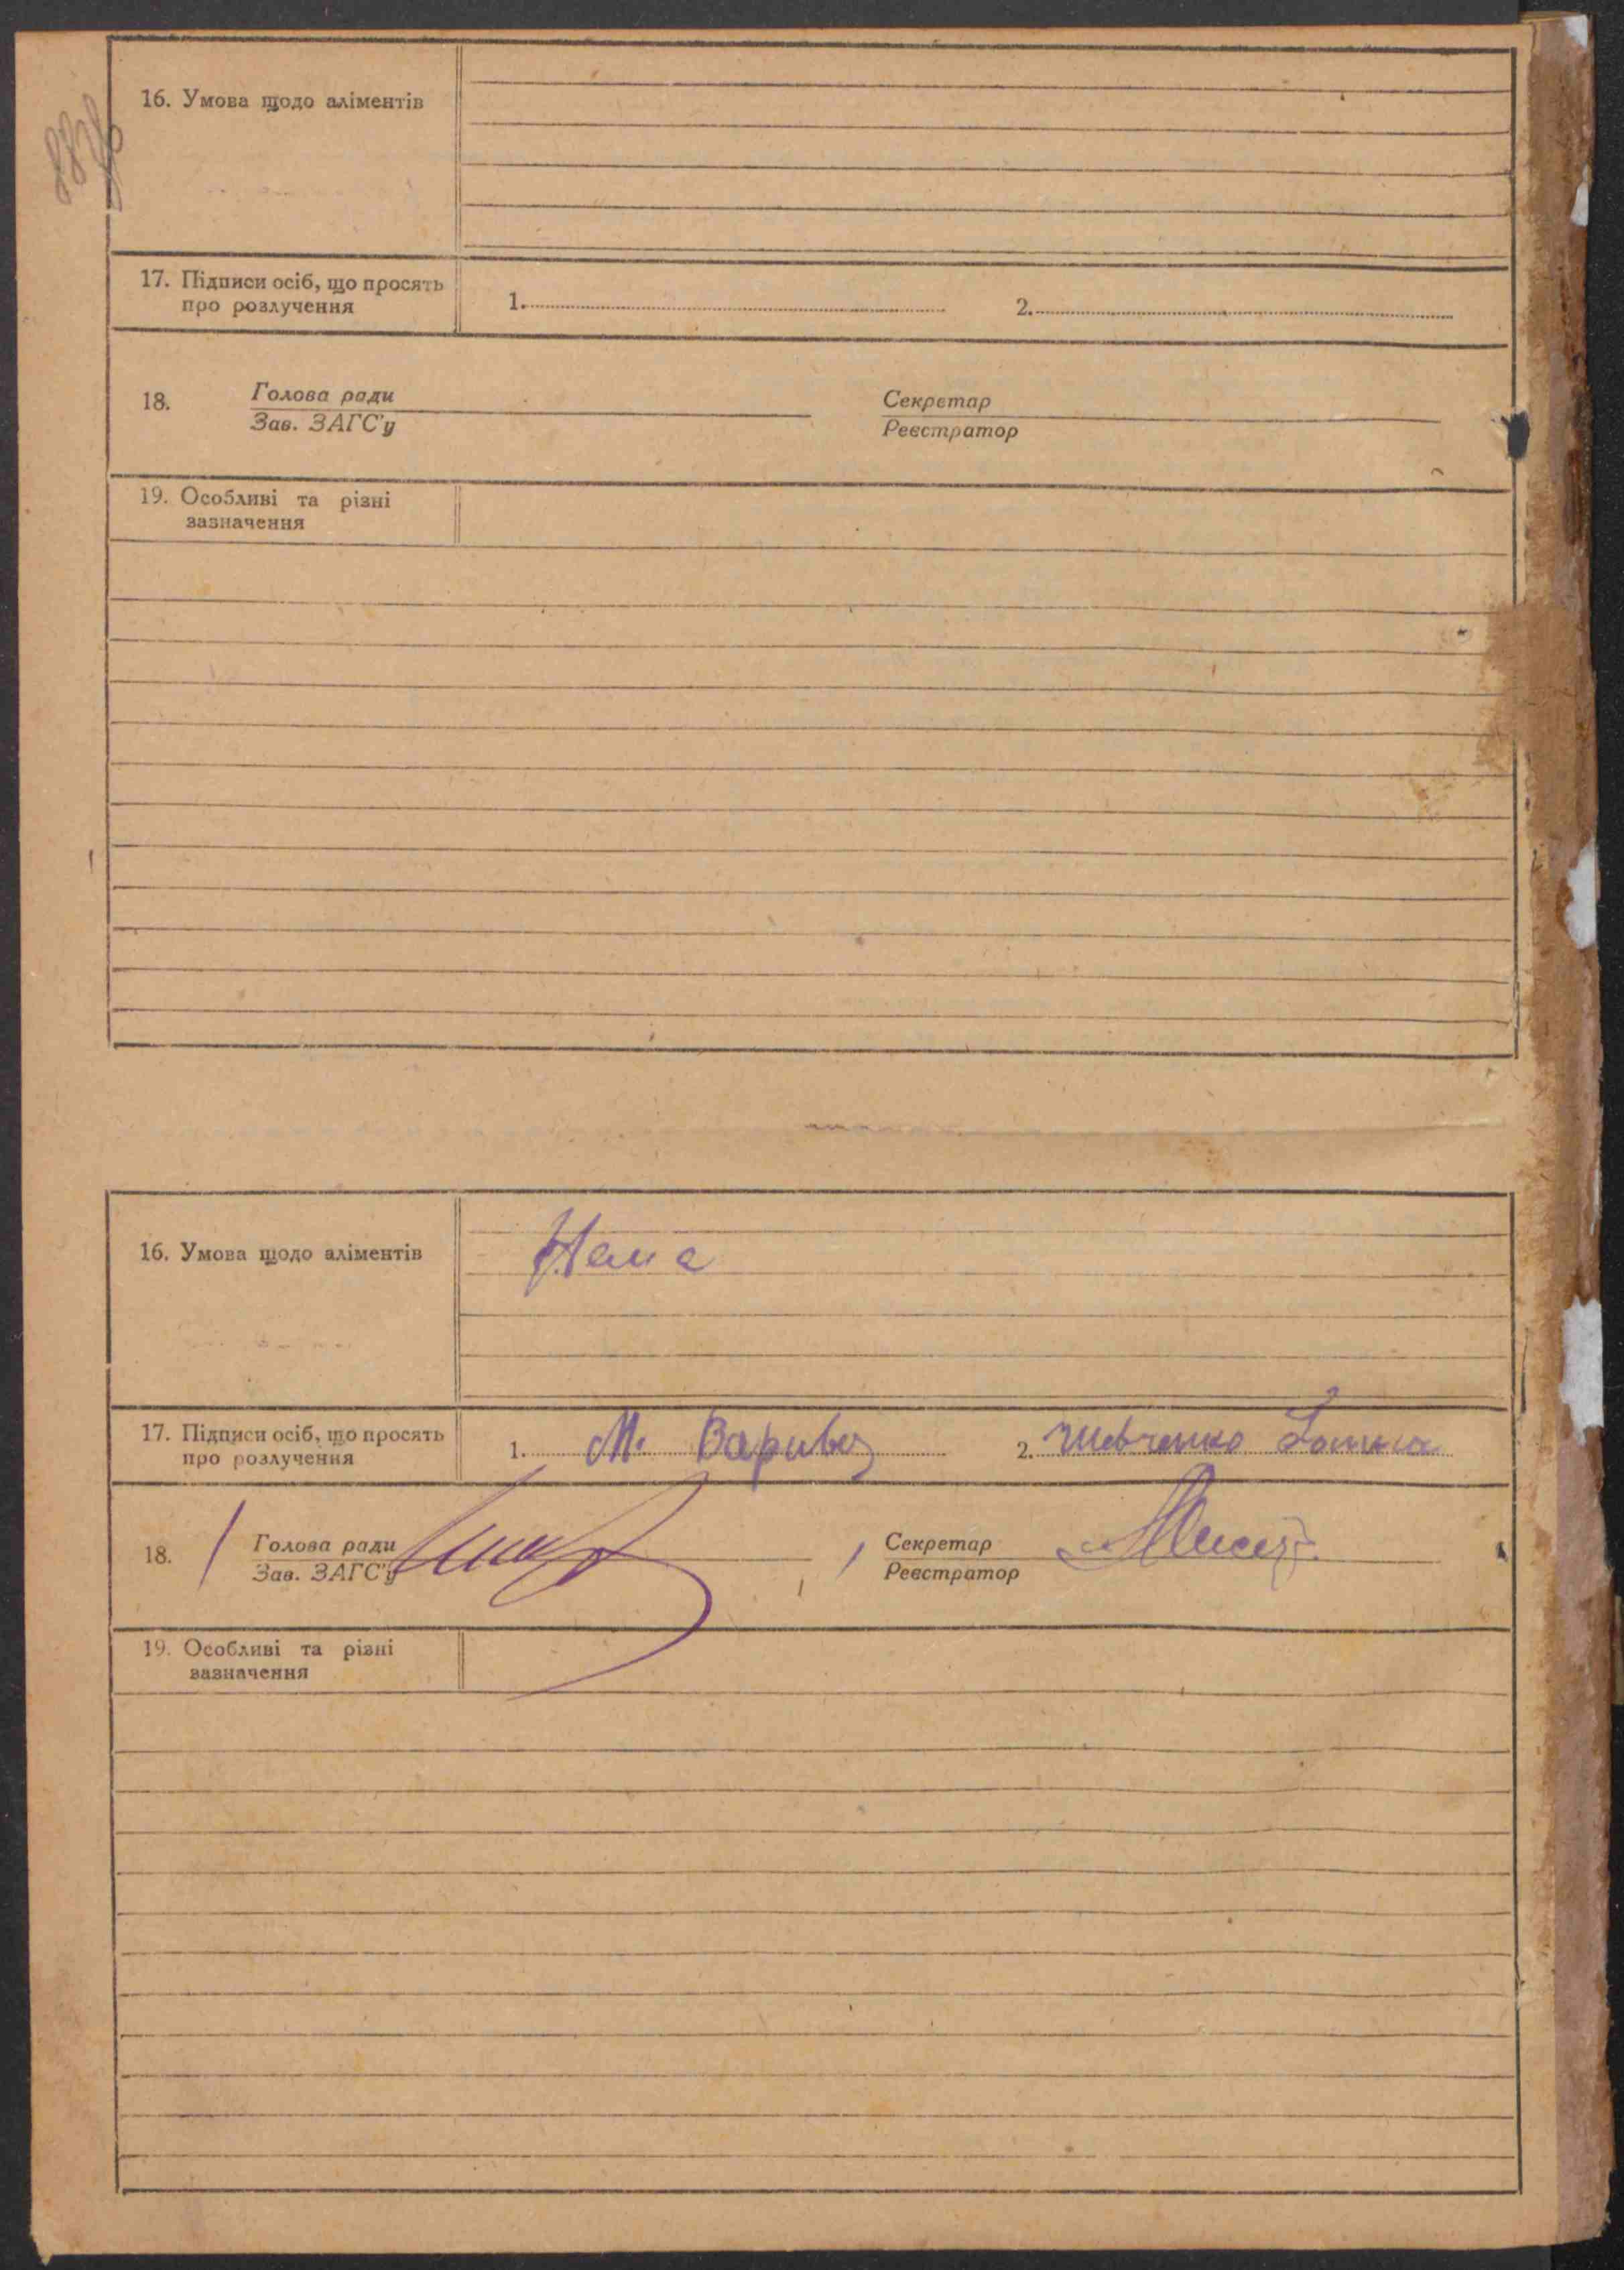 16. Умова щодо аліментів
17. Підписи осіб, що просять
про розлучення
1.
2.
18.
Голова ради
Зав. ЗАГС'у
Секретар
Реєстратор
19. Особливі та різні
зазначення
16. Умова щодо аліментів
Нема
17. Підписи осіб, що просять
про розлучення
1. М.
2. Шевченко
18.
Голова ради
Зав. ЗАГС'у
Секретар
Реєстратор
19. Особливі та різні
зазначення